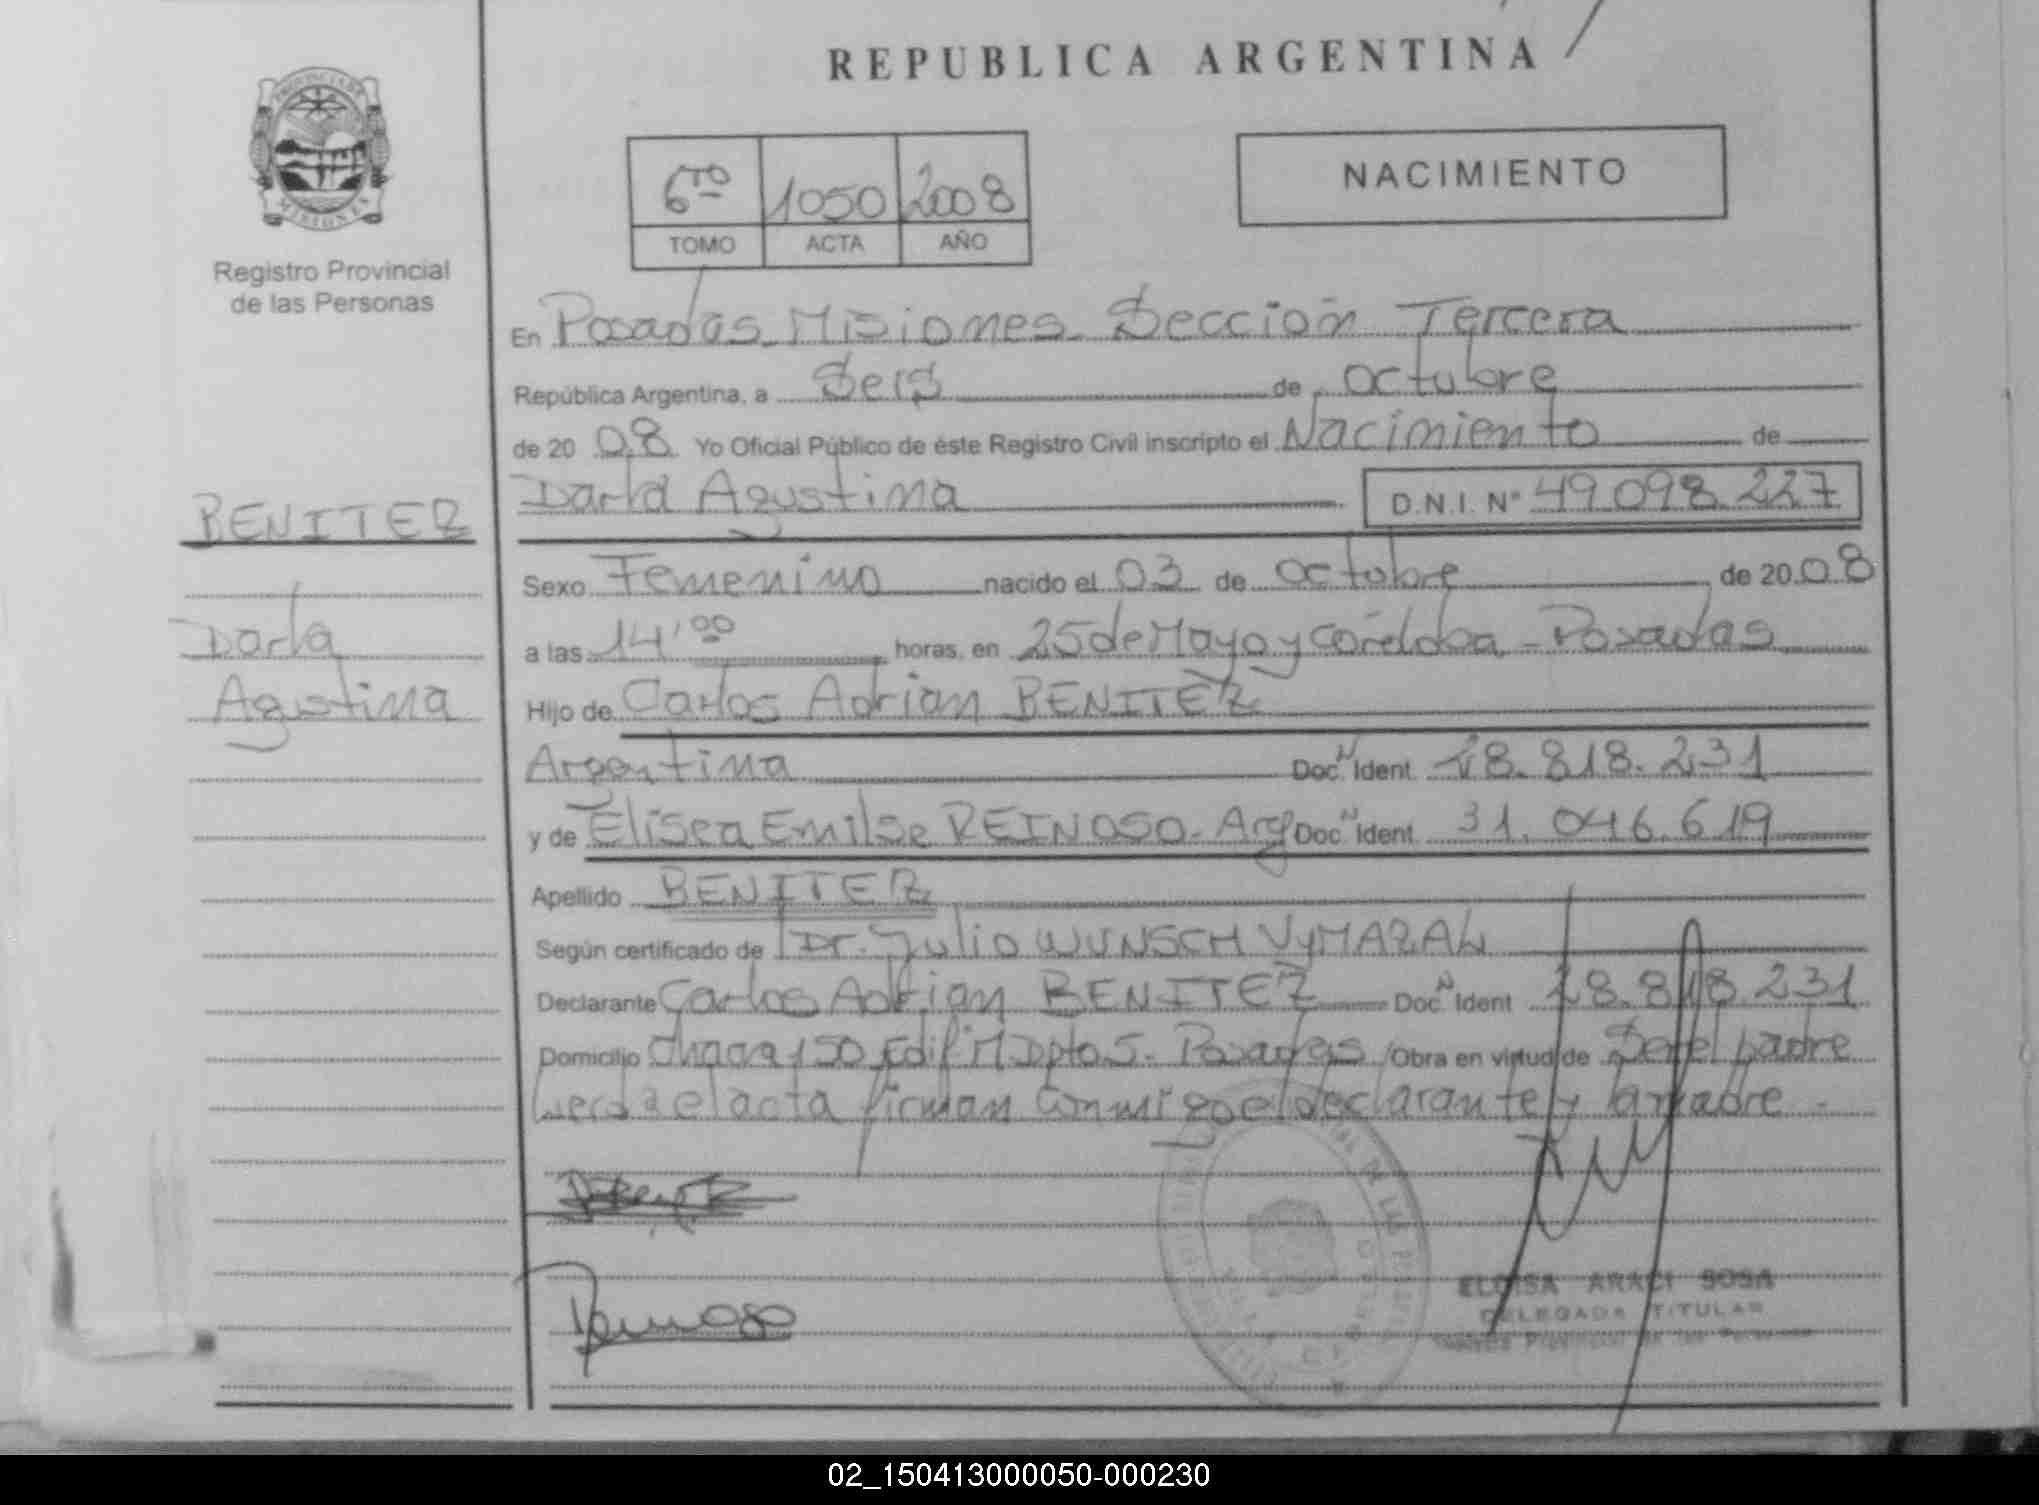 REPUBLICA ARGENTINA
6TO 1050 2008
TOMO ACTA AÑO
NACIMIENTO
PROVINCIA DE MISIONES
Registro Provincial
de las Personas
En Posadas Misiones Sección Tercera
República Argentina, a Seis de octubre
de 20 08 Yo Oficial Público de éste Registro Civil inscripto el Nacimiento de
BENITEZ
Darla Agustina D.N.I. Nº 49.098.227
Sexo Femenino nacido el 03 de octubre de 20 08
Darla
a las 14,00 horas, en 25 de Mayo y Córdoba - Posadas
Agustina
Hijo de Carlos Adrian BENITEZ
Argentina Doc. N Ident 28.818.231
y de Elisea Emilse REINOSO - Arg Doc. N Ident 31.046.619
Apellido BENITEZ
Según certificado de Dr. Julio WUNSCH VyMAZAL
Declarante Carlos Adrian BENITEZ Doc. N Ident 28.818.231
Domicilio Chacra 150 Edif M Dpto 5 - Posadas Obra en virtud de Ser el padre
el acta firman conmigo el declarante y la madre -
Reinoso
ELOISA ARACI SOSA
DELEGADA TITULAR
Registro Provincial de las Personas
02_150413000050-000230